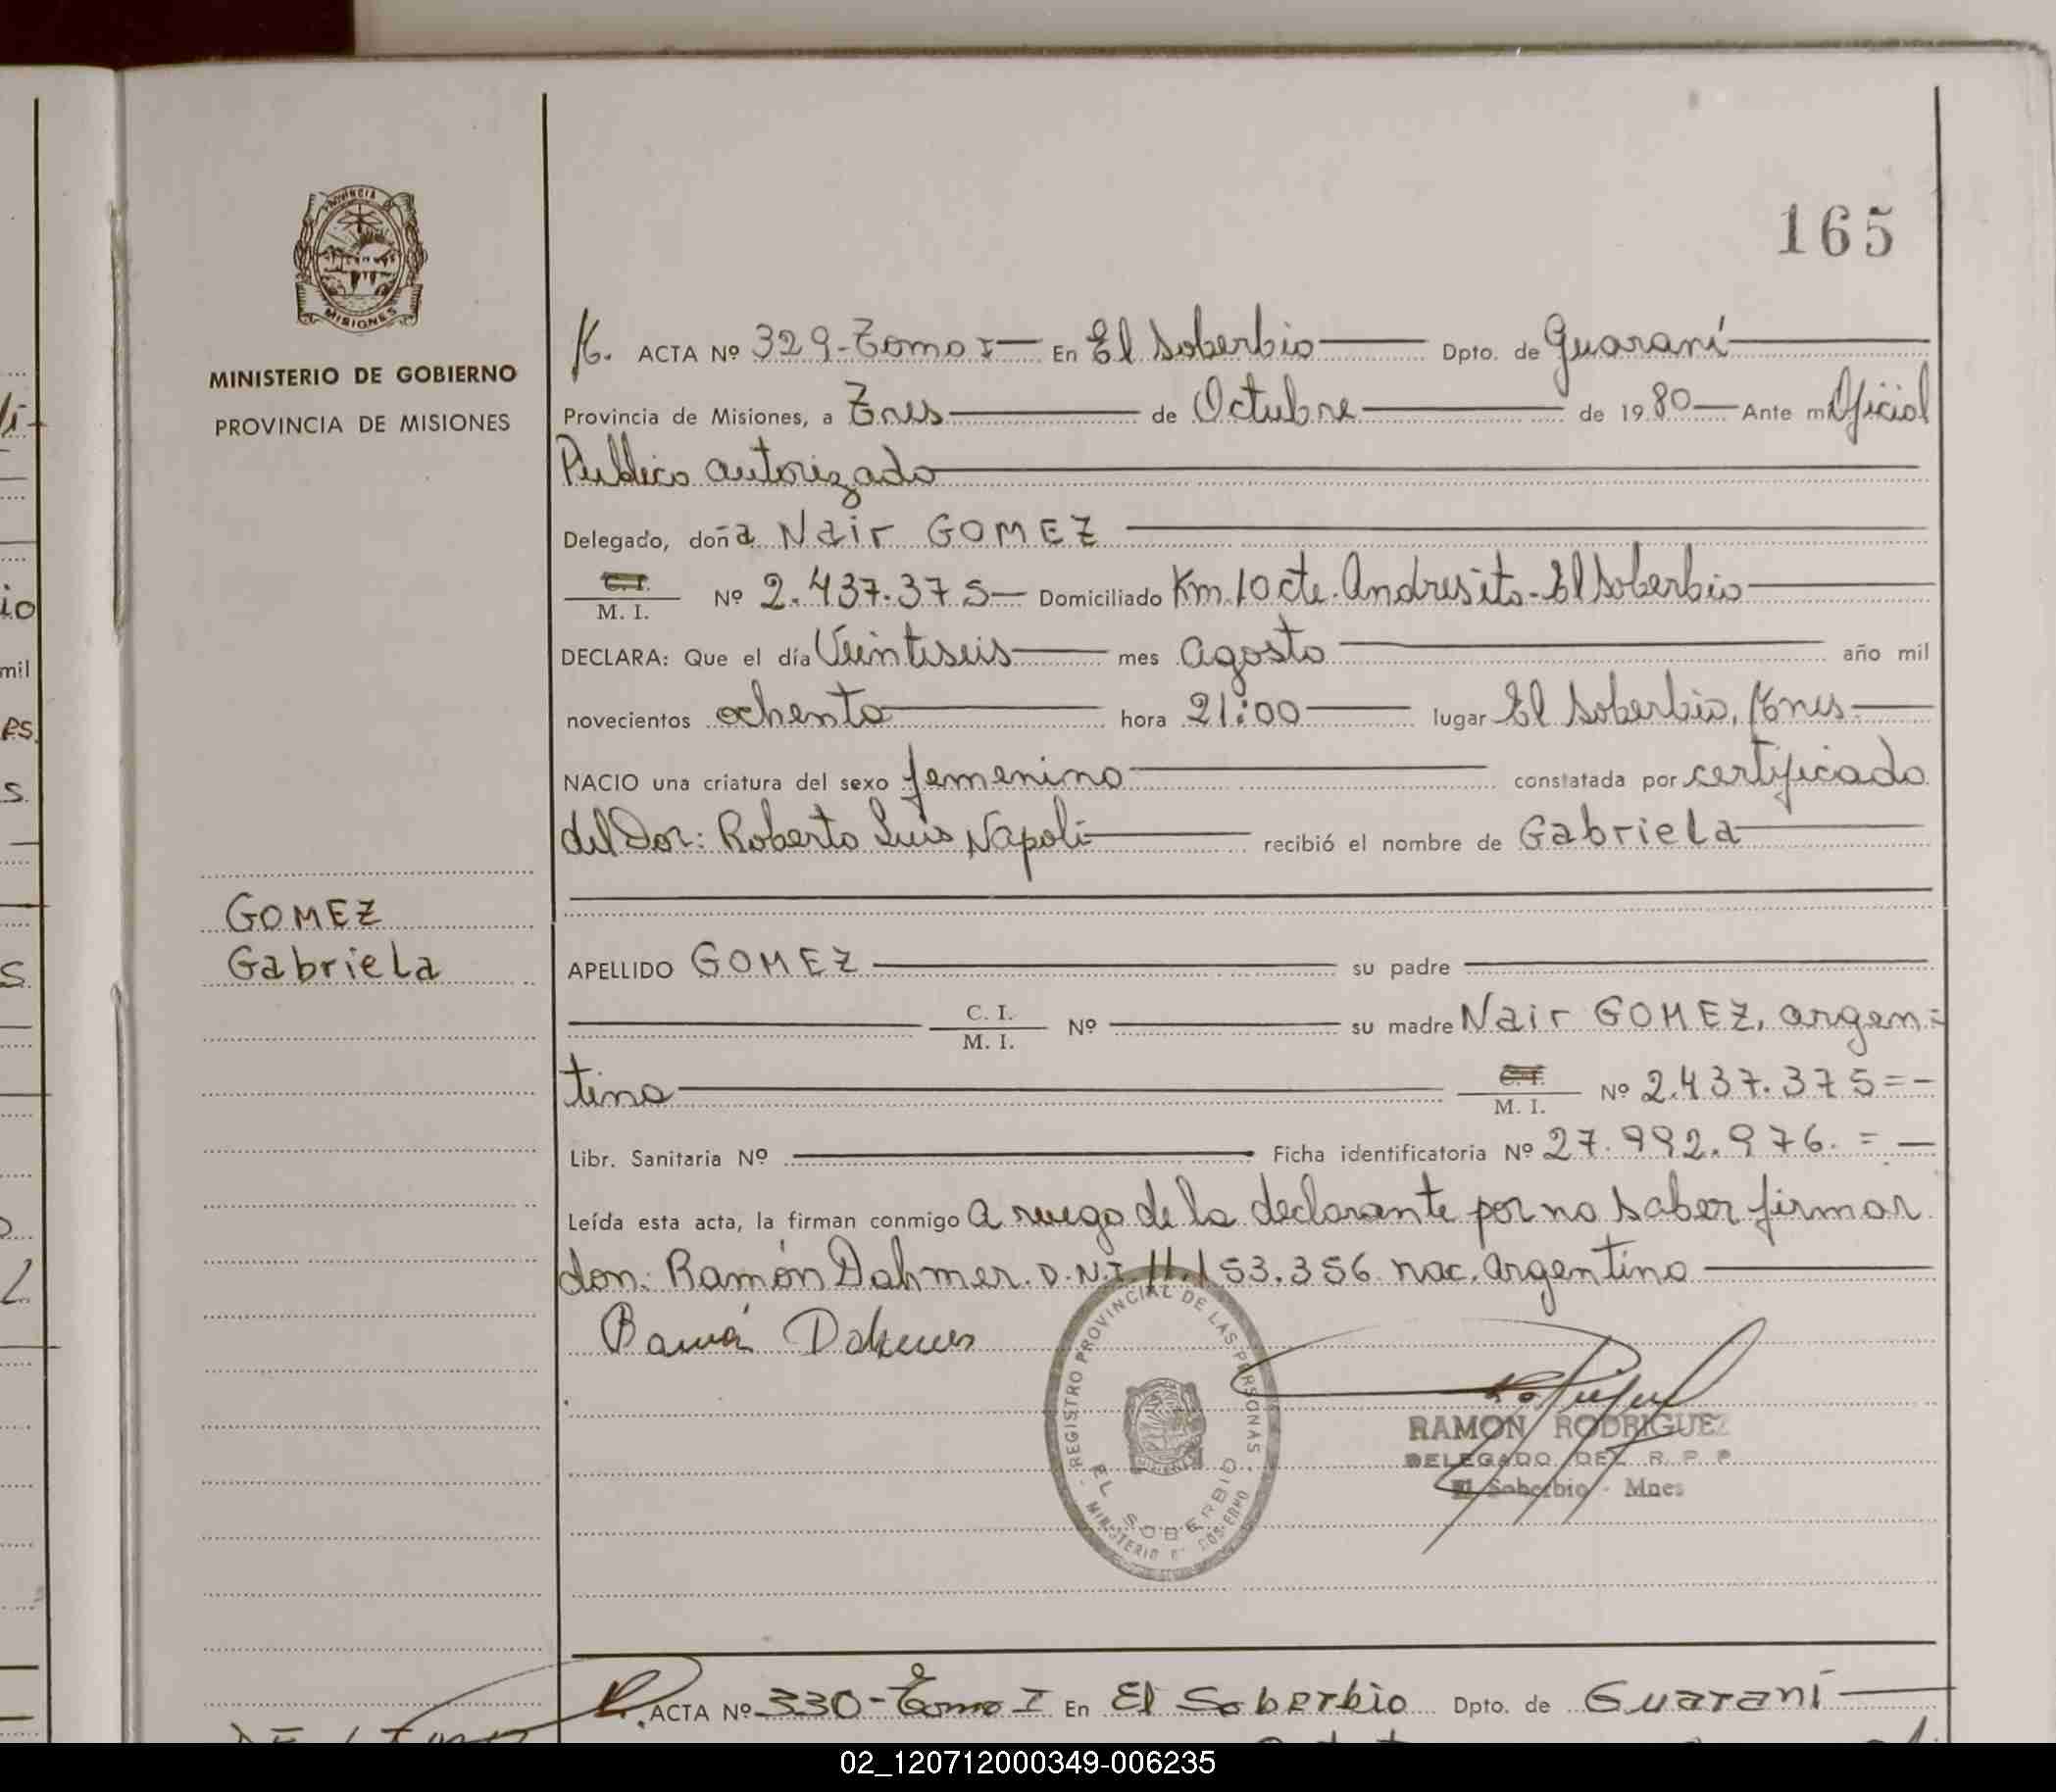 165
PROVINCIA
MISIONES
MINISTERIO DE GOBIERNO
PROVINCIA DE MISIONES
ACTA Nº 329-Tomo I En El Soberbio Dpto. de Guaraní
Provincia de Misiones, a Tres de Octubre de 1980 Ante mi Oficial
Publico autorizado
Delegado, doña Nair GOMEZ
C. I.
M. I. Nº 2.437.375 Domiciliado Km.10 cte. Andresito-El Soberbio
DECLARA: Que el día Veintiseis mes agosto año mil
novecientos ochenta hora 21:00 lugar El Soberbio, Mnes
NACIO una criatura del sexo femenino constatada por certificado
del Dor: Roberto Luis Napoli recibió el nombre de Gabriela
GOMEZ
Gabriela
APELLIDO GOMEZ su padre
C. I.
M. I. Nº su madre Nair GOMEZ, argen=
tina C. I.
M. I. Nº 2.437.375=-
Libr. Sanitaria Nº Ficha identificatoria Nº 27.992.976.=
Leída esta acta, la firman conmigo a ruego de la declarante por no saber firmar
don: Ramón Dahmer. D.N.I. 11.153.356 nac. argentino
REGISTRO PROVINCIAL DE LAS PERSONAS
EL SOBERBIO
RAMON RODRIGUEZ
DELEGADO DEL R. P. P.
El Soberbio - Mnes
ACTA Nº 330-Tomo I En El Soberbio Dpto. de Guaraní
02_120712000349-006235